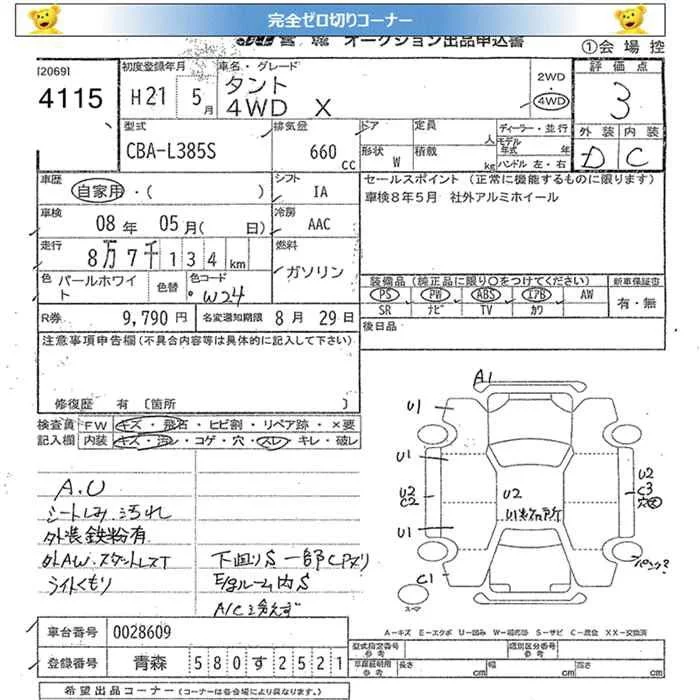 完全ゼロ切りコーナー
オークション出品申込書
①会場控
120691
4115
初度登録年月
H21 5月
車名・グレード
タント
4WD X
2WD
4WD
評価点
3
外装 内装
D C
型式
CBA-L385S
排気量
660 cc
ドア
形状 W
定員 人
積載 kg
ディーラー・並行
モデル年式 年
ハンドル 左・右
車歴
自家用・( )
シフト
IA
セールスポイント(正常に機能するものに限ります)
車検8年5月 社外アルミホイール
車検
08年 05月( 日)
冷房
AAC
走行
8万7千134km
燃料
ガソリン
色
パールホワイト
色替
色コード
W24
装備品(純正品に限り○をつけてください)
新車保証書
PS PW ABS エアB AW
SR ナビ TV カワ
有・無
R券 9,790円
名変通知期限 8月 29日
後日品
注意事項申告欄(不具合内容等は具体的に記入して下さい)
修復歴 有〔箇所 〕
検査員記入欄
FW キズ・飛石・ヒビ割・リペア跡・×要
内装 キズ・汚レ・コゲ・穴・スレ・キレ・破レ
A.U
シートしみ汚れ
外装鉄粉有
外AW.スタットレスT
ライトくもり
下回りS 一部CPヌリ
E/gルーム内S
A/C冷えず
A1
U1
U1
U2
C2
U1
C1
U2
U2
C3
パンク?
スマ
A-キズ E-エクボ U-凹み W-補修跡 S-サビ C-腐食 XX-交換済
車台番号 0028609
登録番号 青森 580す2521
型式指定番号 参考
類別区分番号 参考
車庫証明用 参考
長さ cm
幅 cm
高さ cm
希望出品コーナー(コーナーは各会場により異なります。)